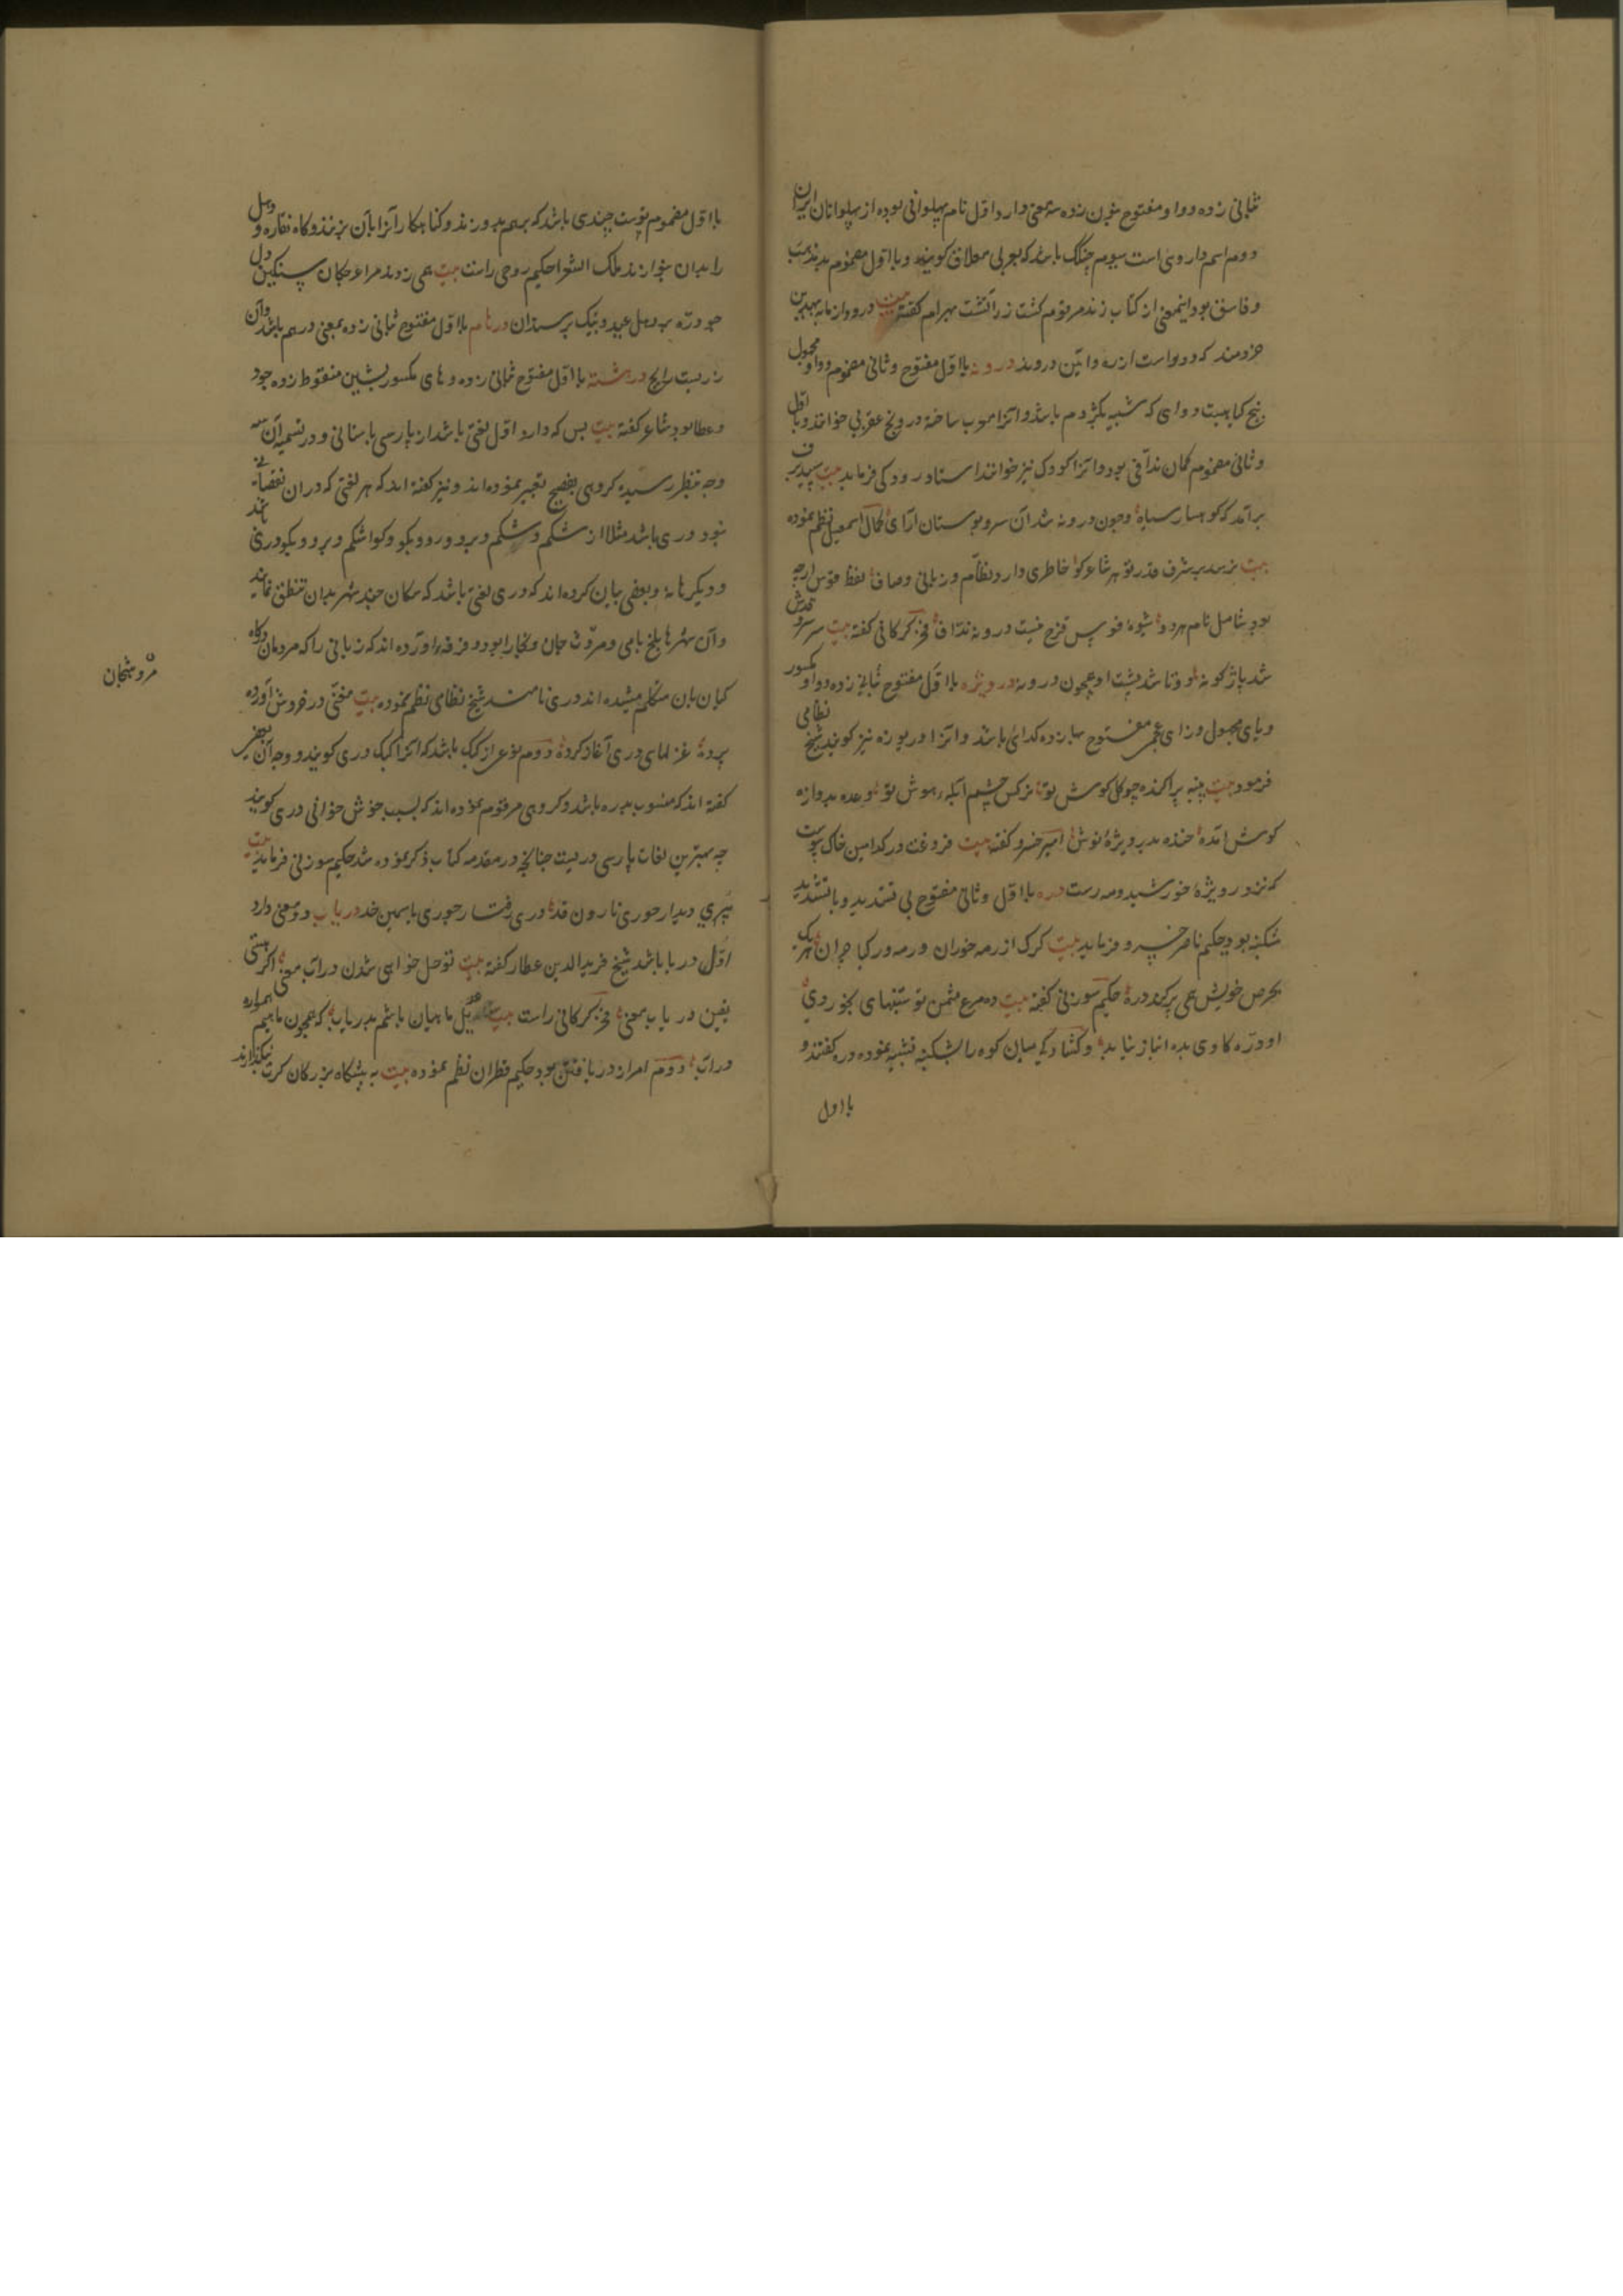 ثانی زده و واو مفتوح بنون زده سه معنی دارد اول نام پهلوانی بوده از پهلوانان ایران
دوم اسم داروی است سیوم چنگک باشد که بعربی معلاق کویند و با اول مضموم بد مذهب
و فاسق بود اینمعنی از کتاب زند مرقوم کشت زراتشت بهرام کفته بیت
خردمند که دور است از ره و آئین دروند درونه با اول مفتوح و ثانی مضموم و واو مجهول
بیخ کیاهیست دوای که شبیه بکژدم باشد و آنرا معرب ساخته درونج عقربی خوانند و با اول
و ثانی مضموم کمان ندافی بود و آنرا کودک نیز خوانند استاد رودکی فرماید بیت سپید برف
برآمد بکوهسار سیاه و چون درونه شد آن سرو بوستان آرای کمال اسمعیل نظم نموده
بیت نرسد بر شرف قدر تو هر شاعر کو خاطری دارد نظام و زبانی وصاف لفظ قوس ارچه
بود شامل نام هر دو شیوه قوس قزح نیست درونه نداف فخر کرکانی کفته بیت سر سرو قدش
شد باژکونه دو تا شد پشت او همچون درونه درویژه با اول مفتوح ثانی زده و واو مکسور
و یای مجهول و زای عجمی مفتوح بها زده کدائی باشد و آنرا دریوزه نیز کویند شیخ نظامی
فرمود بیت پنبه برآکنده چو کل کوش تو نرکس چشم آبله هوش تو وعده بدروازه
کوش آمده خنده بدرویژه نوش آمده امیر خسرو کفته بیت فروغت در کدامین خاک پیوست
که نز درویژه خورشید و مه رست دره با اول و ثانی مفتوح بی تشدید و با تشدید
شکنبه بود حکیم ناصر خسرو فرماید بیت کرک از رمه خواران و رمه در کیا چران هر یک
بحرص خویش همی پر کند دره حکیم سوزنی کفته بیت ده مرغ مثمن تو شبهای بخوردی
او دره کاوی بده انباز نیابد و کشادکی میان کوه را بشکنبه تشبیه نموده دره کفتند و
با اول
با اول مضموم پوست چندی باشد که بر هم بدوزند و کناهکار را بآن بزنند و کاه نقاره و دهل
را بدان بنوازند ملک الشعرا حکیم روحی راست بیت همی زدند مرا عوجکان سنکین دل
چو دره بر دهل عید و بیک پرستان درهام با اول مفتوح ثانی زده بمعنی درهم باشد و آن
زریست رایج درهشته با اول مفتوح ثانی زده و های مکسور بشین منقوط زده جود
و عطا بود شاعر کفته بیت بس که دارد اول لغتی باشد از پارسی باستانی و در تسمیه آن سه
وجه بنظر رسیده کروهی بفصیح تعبیر نموده‌اند و نیز کفته اند که هر لغتی که در آن نقصانی
نبود دری باشد مثلا از شکم و اشکم و برو و ابرو و بکو و کو اشکم و برو و بکو دری باشد
و دیکرها نه و بعضی بیان کرده‌اند که دری لغتی باشد که سکان چند شهر بدان تنطق نمایند
و آن شهرها بلخ بامی و مرو شاه جان و بخارا بود و فرقه آورده اند که زبانی را که مردمان درکاه
کیان بآن متکلم میشده اند دری نامند شیخ نظامی نظم نموده بیت مغنی در خروش آورده
پرده غزلهای دری آغاز کرده دوم نوعی از کبک باشد که آنرا کبک دری کویند و وجه آن بعضی
کفته اند که منسوب بدره باشد و کروهی مرقوم نموده اند که بسبب خوش خوانی دری کویند
چه بهترین لغات پارسی دریست چنانچه در مقدمه کتاب ذکر نموده شد حکیم سوزنی فرماید بیت
پری دیدار حوری نارون قد دری رفتار حوری یاسمین خد دریاب دو معنی دارد
اول دریا باشد شیخ فریدالدین عطار کفته بیت تو حل خواهی شدن در آب معنی اکر هستی
یقین دریاب معنی فخر کرکانی راست بیت عدیل ماهیان باشم بدریاب که همچون ماهیم همواره
در آب دوم امر از دریافتن بود حکیم قطران نظم نموده بیت به پیشکاه بزرکان کرت بنکذارند
مرو شهجان